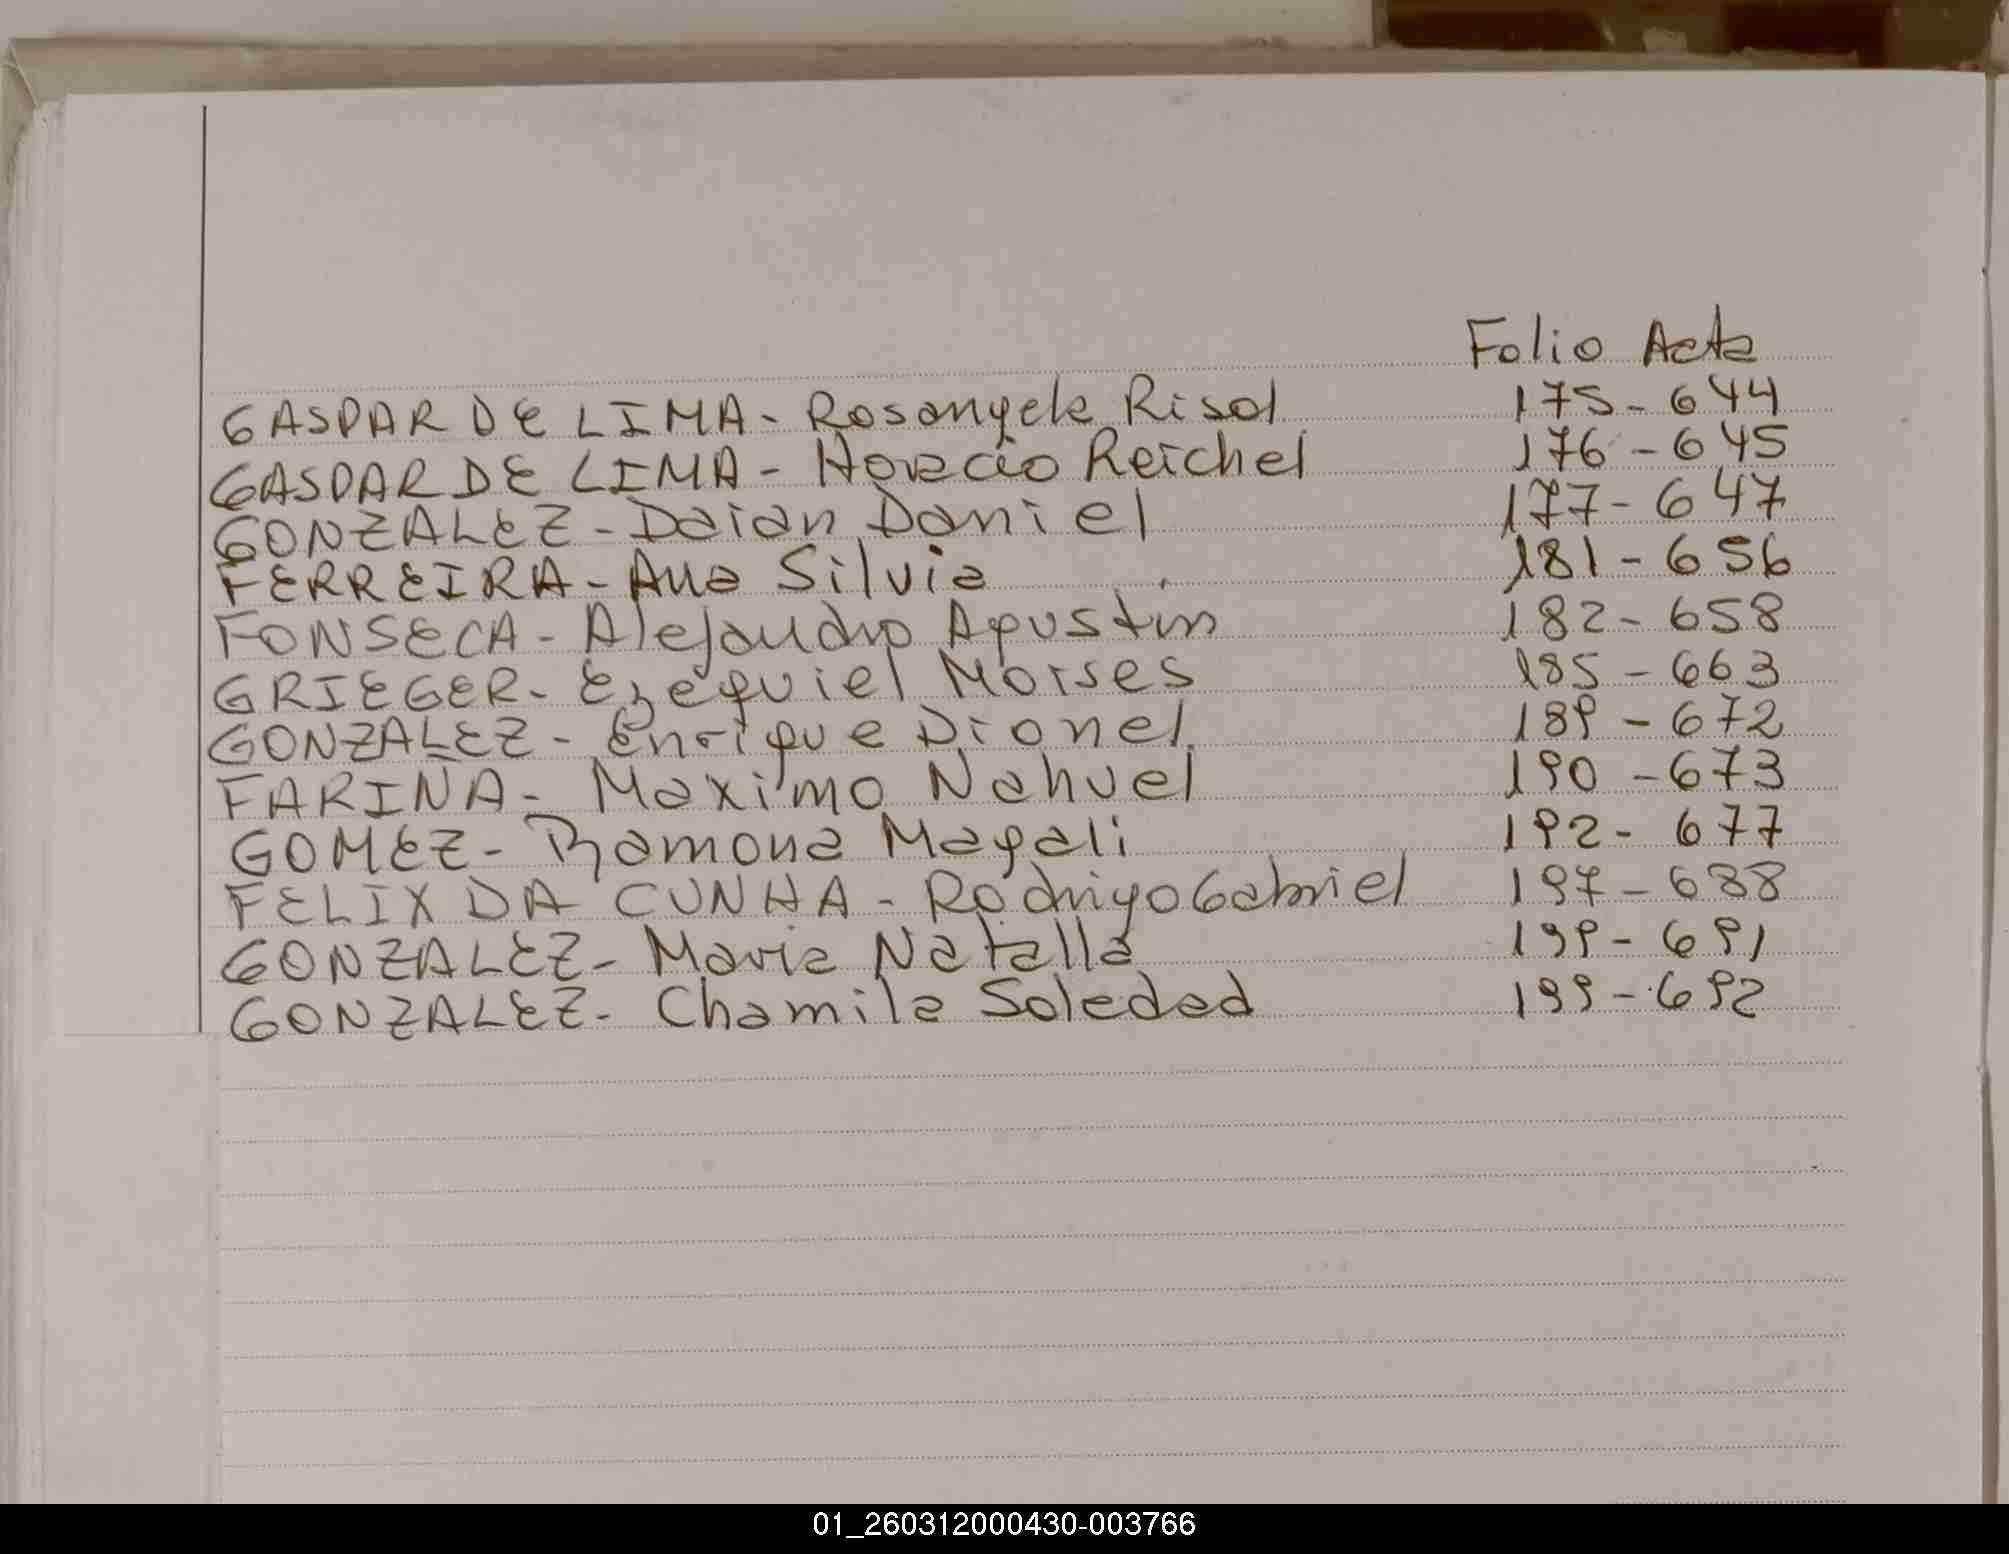 Folio Acta
GASPAR DE LIMA - Rosangela Risol 175 - 644
GASPAR DE LIMA - Horacio Reichel 176 - 645
GONZALEZ - Daian Daniel 177 - 647
FERREIRA - Ana Silvia 181 - 656
FONSECA - Alejandro Agustin 182 - 658
GRIEGER - Ezequiel Moises 185 - 663
GONZALEZ - Enrique Dionel 189 - 672
FARINA - Maximo Nahuel 190 - 673
GOMEZ - Ramona Magali 192 - 677
FELIX DA CUNHA - Rodrigo Gabriel 197 - 688
GONZALEZ - Maria Natalla 199 - 691
GONZALEZ - Chamila Soledad 199 - 692
01_260312000430-003766